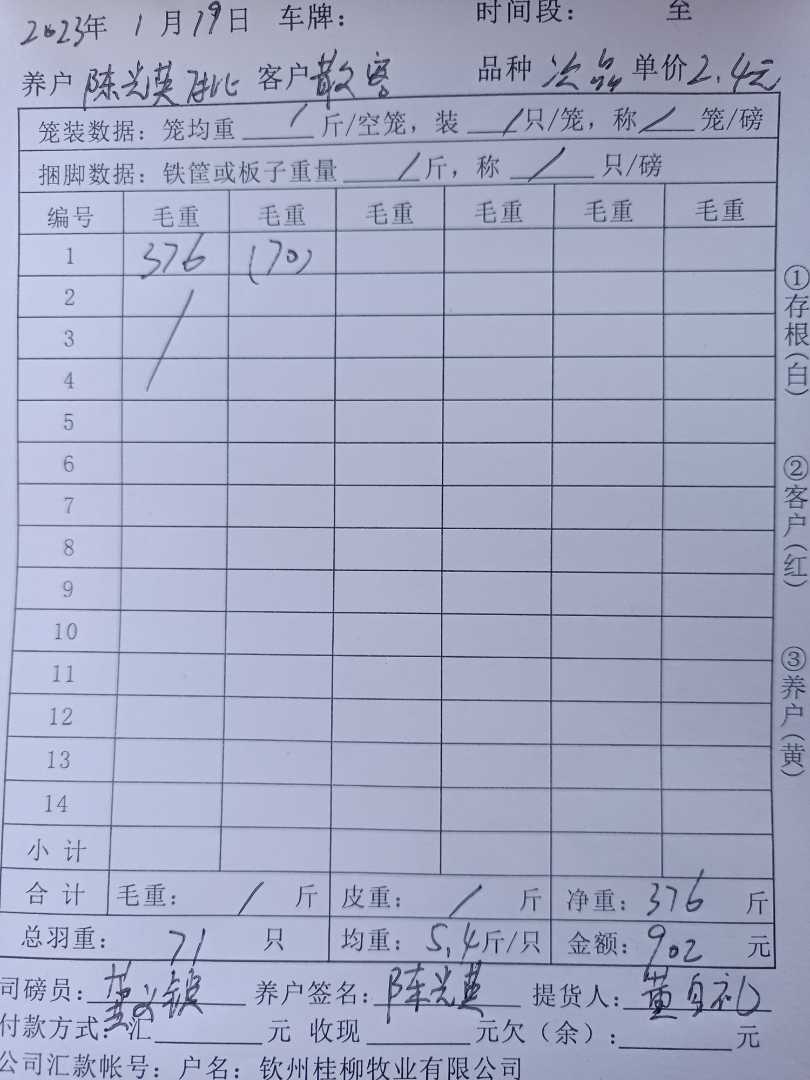 2023年 1月19日 车牌： 时间段： 至
养户 陈光英 客户 散客 品种 次品 单价 2.4元
笼装数据：笼均重 / 斤/空笼，装 / 只/笼，称 / 笼/磅
捆脚数据：铁筐或板子重量 / 斤，称 / 只/磅
编号 毛重 毛重 毛重 毛重 毛重 毛重
1 376 (70)
2
3
4
5
6
7
8
9
10
11
12
13
14
小计
合计 毛重： / 斤 皮重： / 斤 净重：376 斤
总羽重： 71 只 均重：5.4斤/只 金额：902 元
司磅员： 养户签名：陈光英 提货人：黄自礼
付款方式：汇 元 收现 元欠（余）： 元
公司汇款帐号：户名：钦州桂柳牧业有限公司
①存根(白)
②客户(红)
③养户(黄)